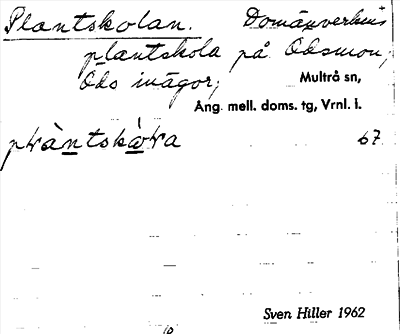 Plantskolan. Domänverkets
plantskola på Ödsmon,
Öds inägor,
Multrå sn,
Ång. mell. doms. tg, Vrnl. l.
67
Sven Hiller 1962